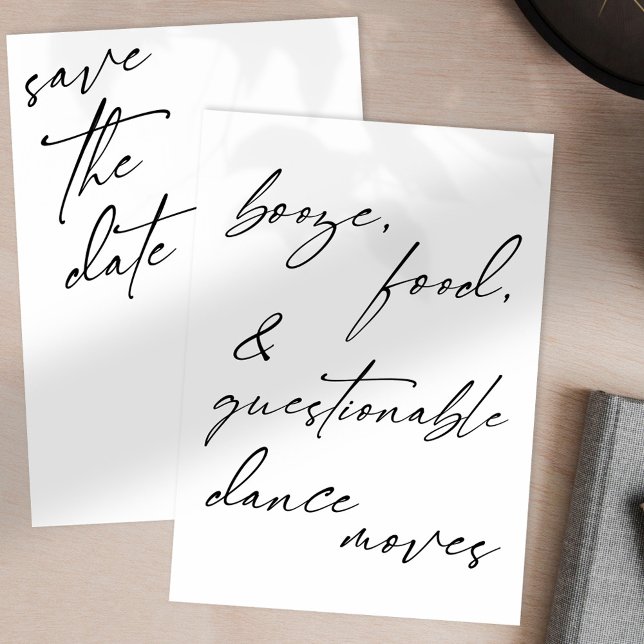 save
the
date
booze,
food,
&
questionable
dance
moves